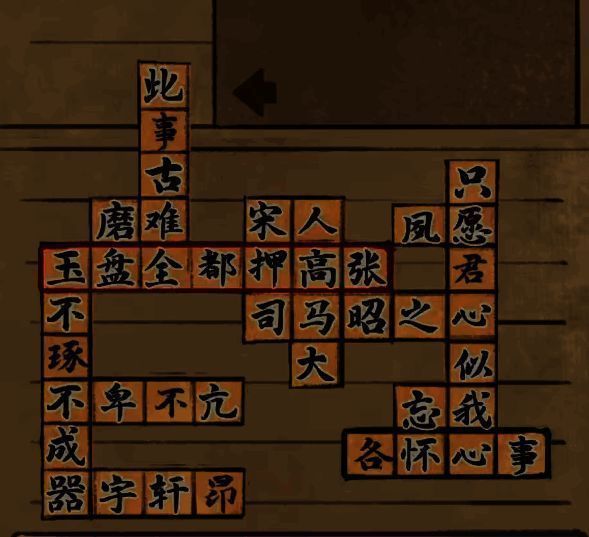 此
事
古 只
磨难 宋人 夙愿
玉盘全都押高张 君
不 司马昭之心
琢 大 似
不卑不亢 忘我
成 各怀心事
器宇轩昂